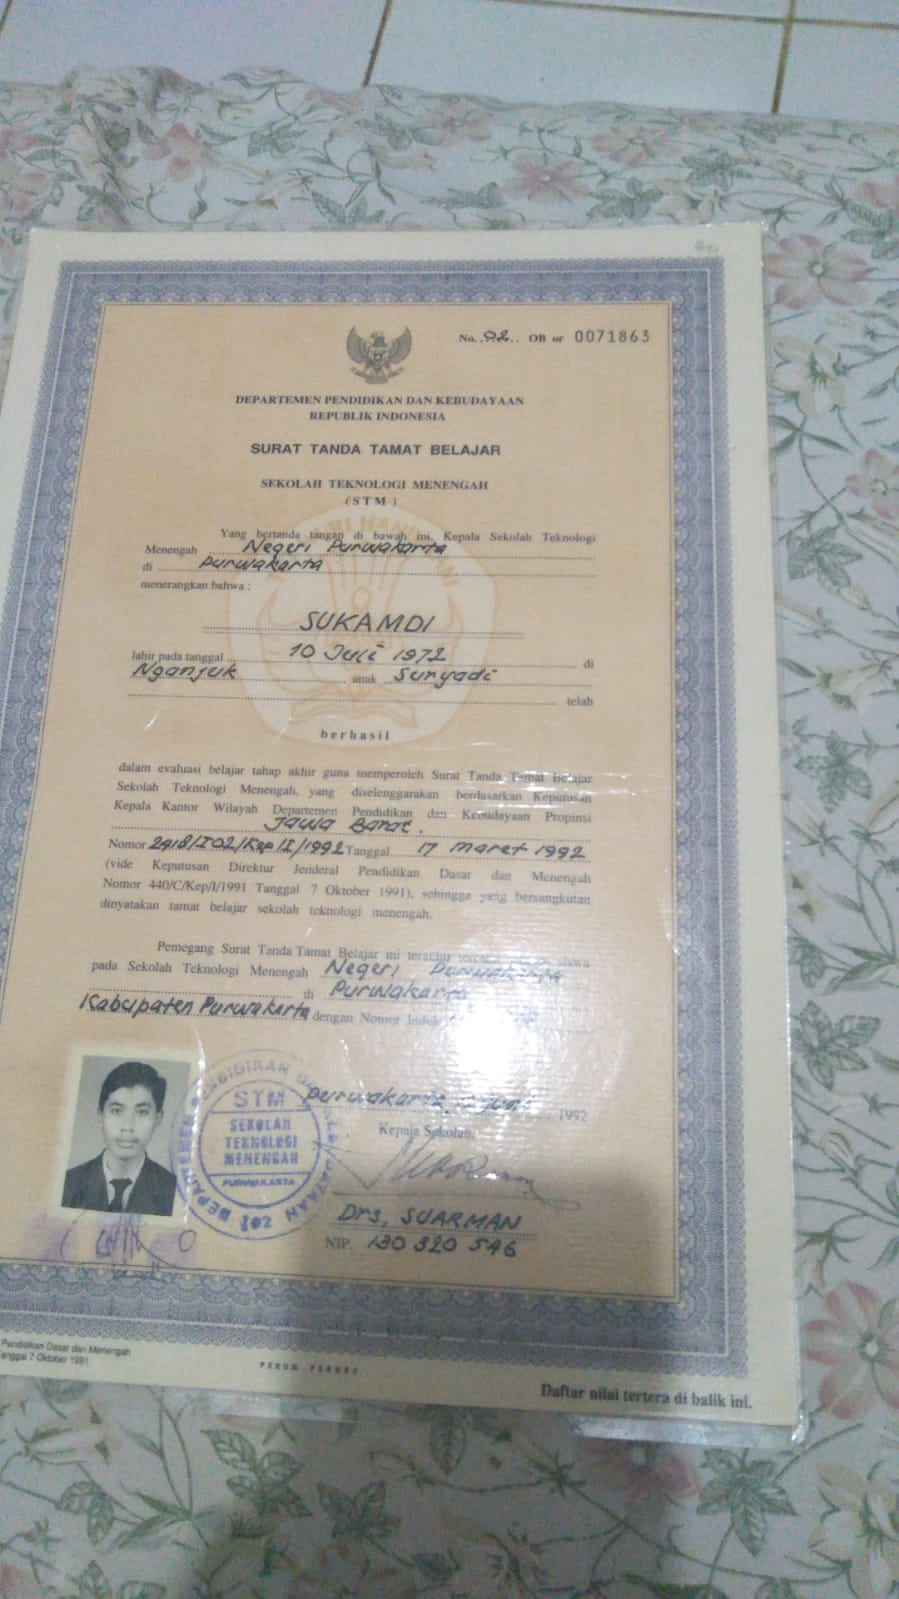 No. 02. OB or 0071863
DEPARTEMEN PENDIDIKAN DAN KEBUDAYAAN
REPUBLIK INDONESIA
SURAT TANDA TAMAT BELAJAR
SEKOLAH TEKNOLOGI MENENGAH
(STM)
Yang bertanda tangan di bawah ini, Kepala Sekolah Teknologi
Menengah Negeri Purwakarta
di Purwakarta
menerangkan bahwa :
SUKAMDI
lahir pada tanggal 10 Juli 1972 di
Nganjuk anak Suryadi
telah
berhasil
dalam evaluasi belajar tahap akhir guna memperoleh Surat Tanda Tamat Belajar
Sekolah Teknologi Menengah, yang diselenggarakan berdasarkan Keputusan
Kepala Kantor Wilayah Departemen Pendidikan dan Kebudayaan Propinsi
Jawa Barat.
Nomor 2418/I02/Kep/I/1992 Tanggal 17 Maret 1992
(vide Keputusan Direktur Jenderal Pendidikan Dasar dan Menengah
Nomor 440/C/Kep/I/1991 Tanggal 7 Oktober 1991), sehingga yang bersangkutan
dinyatakan tamat belajar sekolah teknologi menengah.
Pemegang Surat Tanda Tamat Belajar ini terakhir
pada Sekolah Teknologi Menengah Negeri Purwakarta
di Purwakarta
Kabupaten Purwakarta dengan Nomor Induk
Purwakarta, 1992
Kepala Sekolah,
STM
SEKOLAH
TEKNOLOGI
MENENGAH
PURWAKARTA
Drs. SUARMAN
NIP. 130 320 546
Pendidikan Dasar dan Menengah
anggal 7 Oktober 1991
PERUM PERURI
Daftar nilai tertera di balik ini.